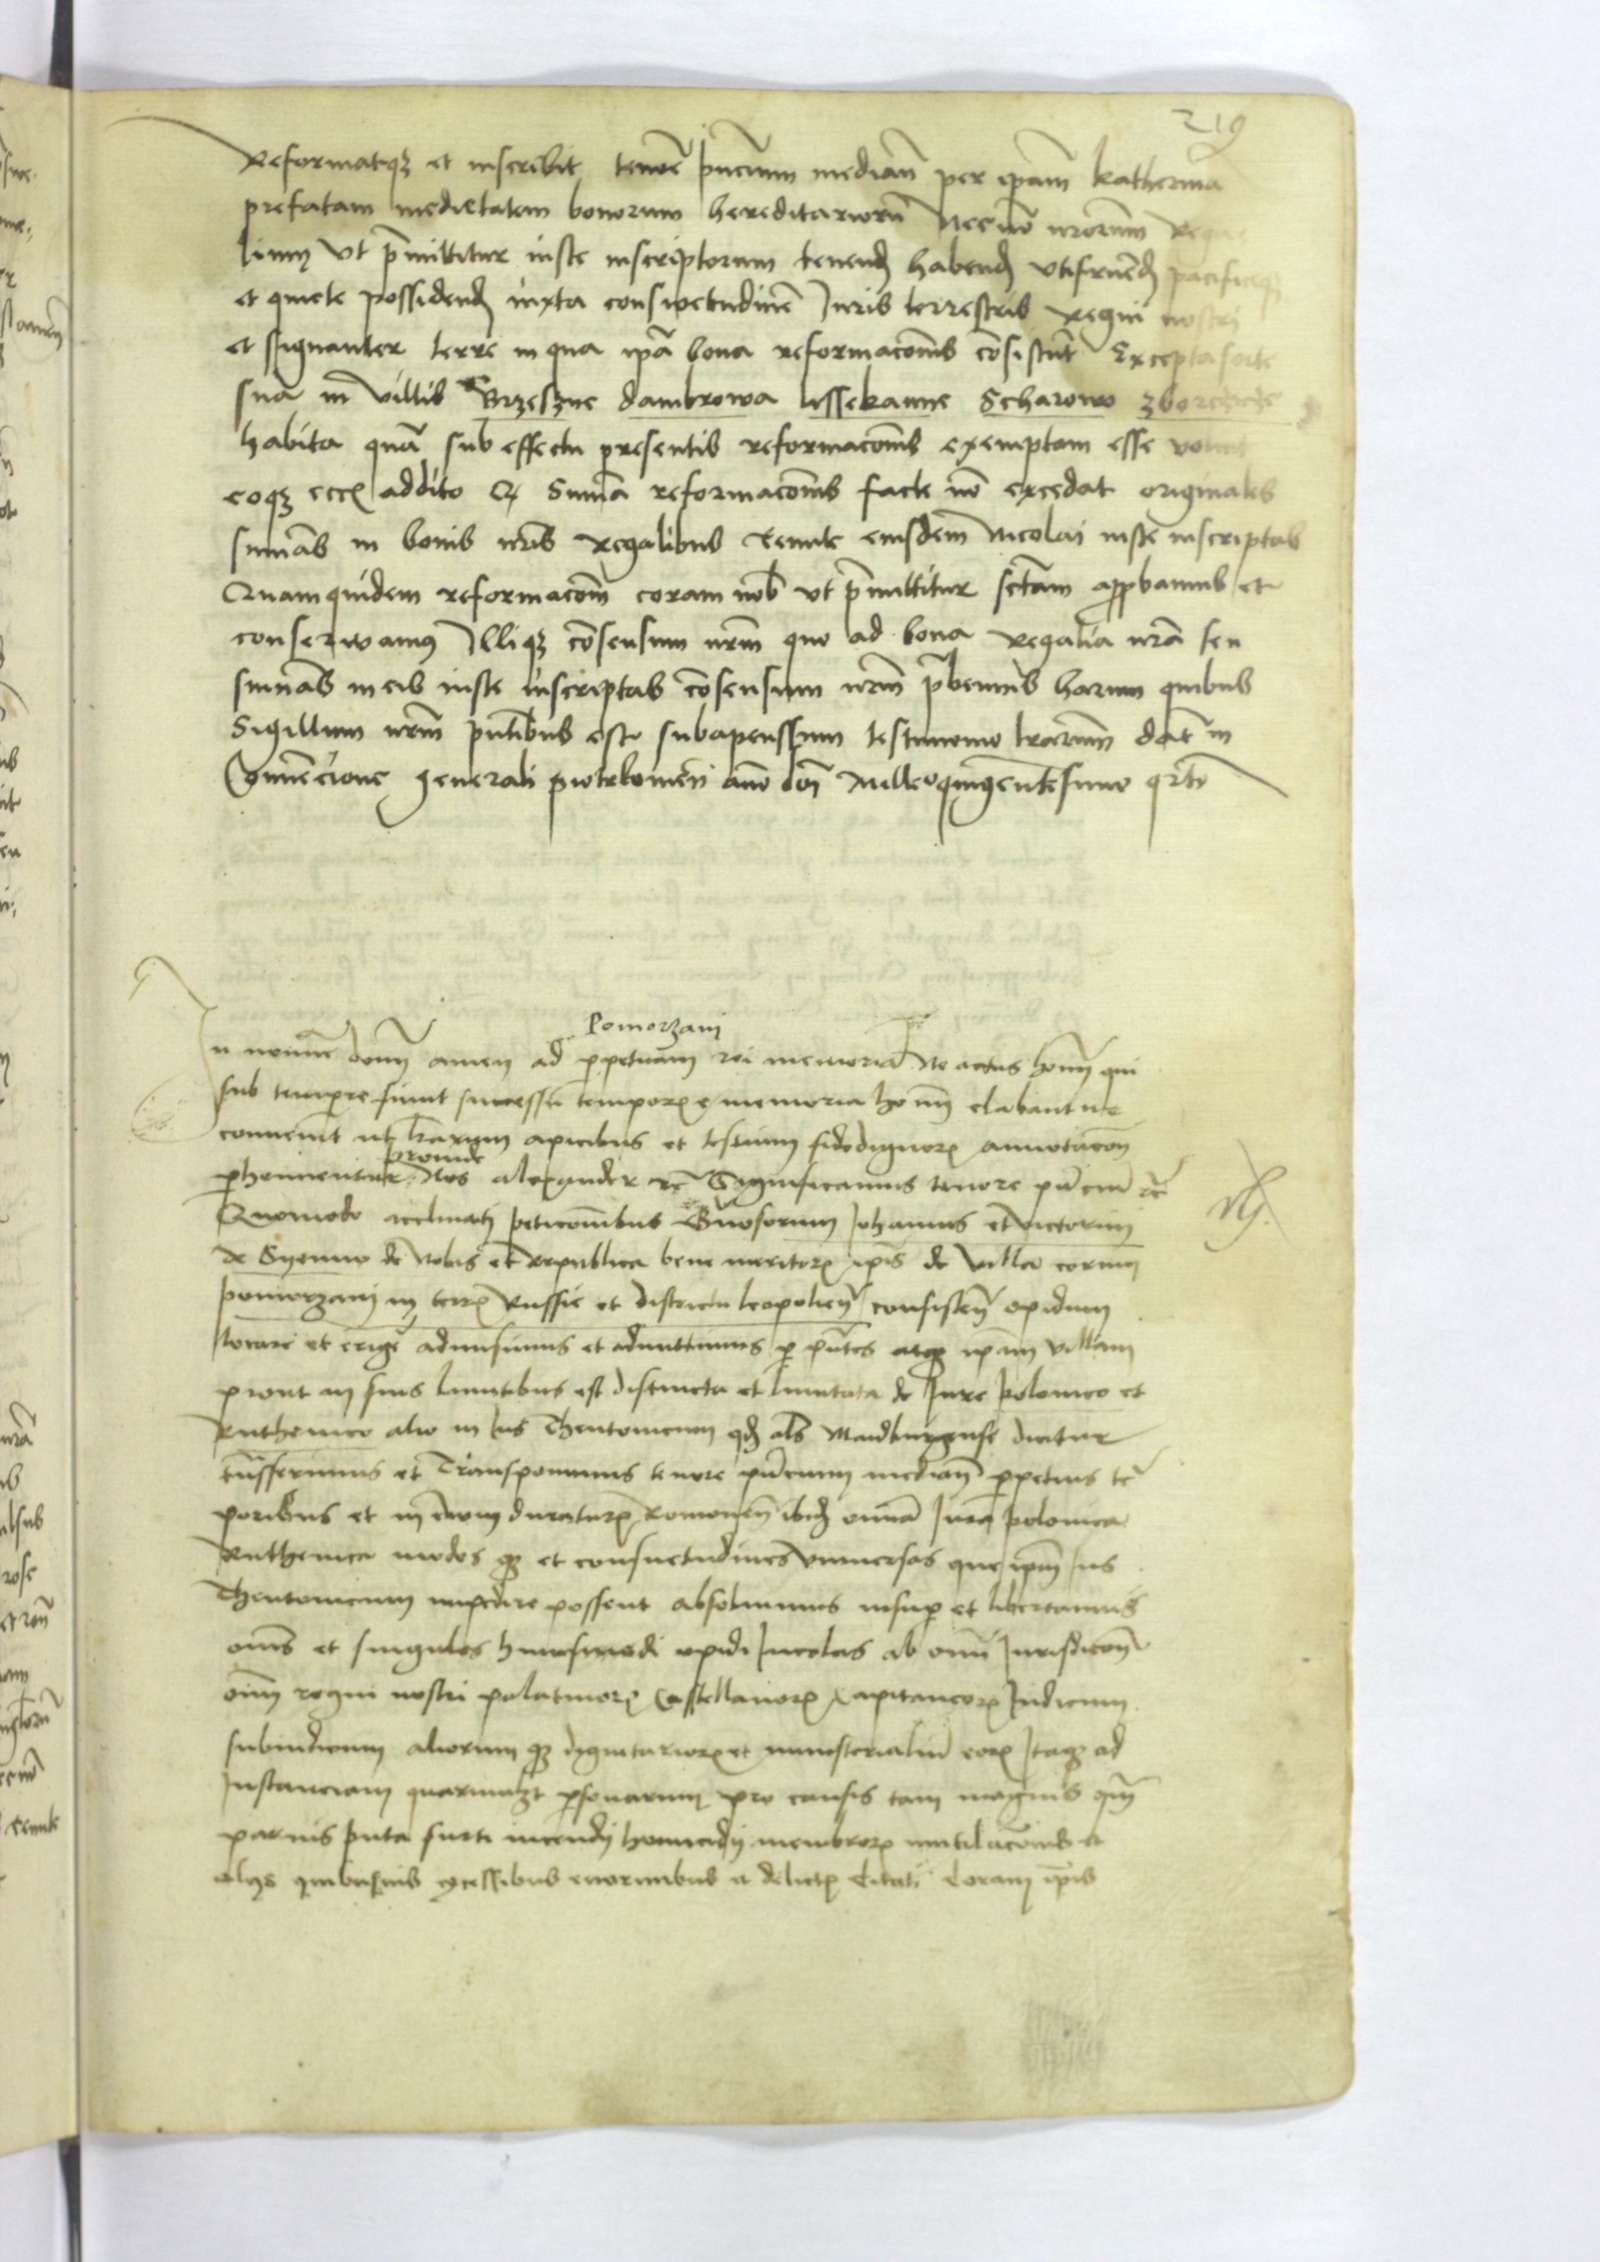 219
Reformatqz et inscribit tenore pncium mediān per ipam Katherina
prefatam medietatem bonorum hereditariorū Necnō nrorum Rega
lium Vt pmittitur iuste inscriptorum tenend habend vtifruēd pacificeqz
et quiete possidend iuxta conswetudinē Juris terrestris Regni nostri
et signanter terre in qua ipa bona reformacōnis cosistūt Excepta sorte
sua in villis Brzeszne dambrowa lissekanne Scharowo
habita quā sub effectu presentis reformacōnis exemptam esse voluit
eoqz addito Q Summa reformacōnis facte nō excedat originales
summas in bonis nris Regalibus eiusdem Nicolai iuste inscriptas
Quamquidem reformacōm coram nob vt pmittitur fctam appbamus et
conserwamus Illiqz cōsensum nrm quo ad bona Regalia nra seu
summas in eis iuste inscriptas cōsensum nrm pbemus harum quibus
Sigillum nrm pntibus est subapenssum testimonio lrarum dat in
Convēcione generali piotrkowiēn anno dni Millesoquingentesimo qrto
Pomorzani
In nomine domi amen ad ppetuam rei memoria Ne actus homn qui
sub tempore fiunt successu tempor e memoria homi elabantur
convenit ut lrarum apicibus et testium fidedignor annotacōn
phennentur proinde Nos alexander rc Significamus tenore pncium rc
Quomodo acclinati peticōnibus Gnosorum Johannis et victorini
de Syenno de Nobis et Republica bene meritor ipis de villa eorum
pomorzani in terr Russie et districtu leopolien consisten opidum
locare et erige admisimus et admittimus p pntes atqz ipam villam
prout in suis limitibus est distincta et limitata de Jure polonico et
Ruthenico alio in Jus Theutonicum qd als Maidburgense dicitur
tnsferimus et Transponimus tenore pncium median ppetuis te
poribus et in evom duratur Romoven ibid omnia Jura polonica
Ruthenica modos qz et consuetudines vniuersas que ipm Jus
Theutonicum impedire possent absoluimus insup et libertamus
omes et singulos huiusmodi opidi Incolas ab omi Jurisdicōn
oim regni nostri palatinor Castellanor Capitaneor Judicum
subiudicum aliorum qz dignitarior et ministerialiu eor Itaqz ad
Instanciam quarumlzt psonarum pro causis tam magnis qm
parvis puta furti incendij homicidij membror mutilacōnis a
alijs quibusvis excessibus enormibus a delict Citati Coram ipis